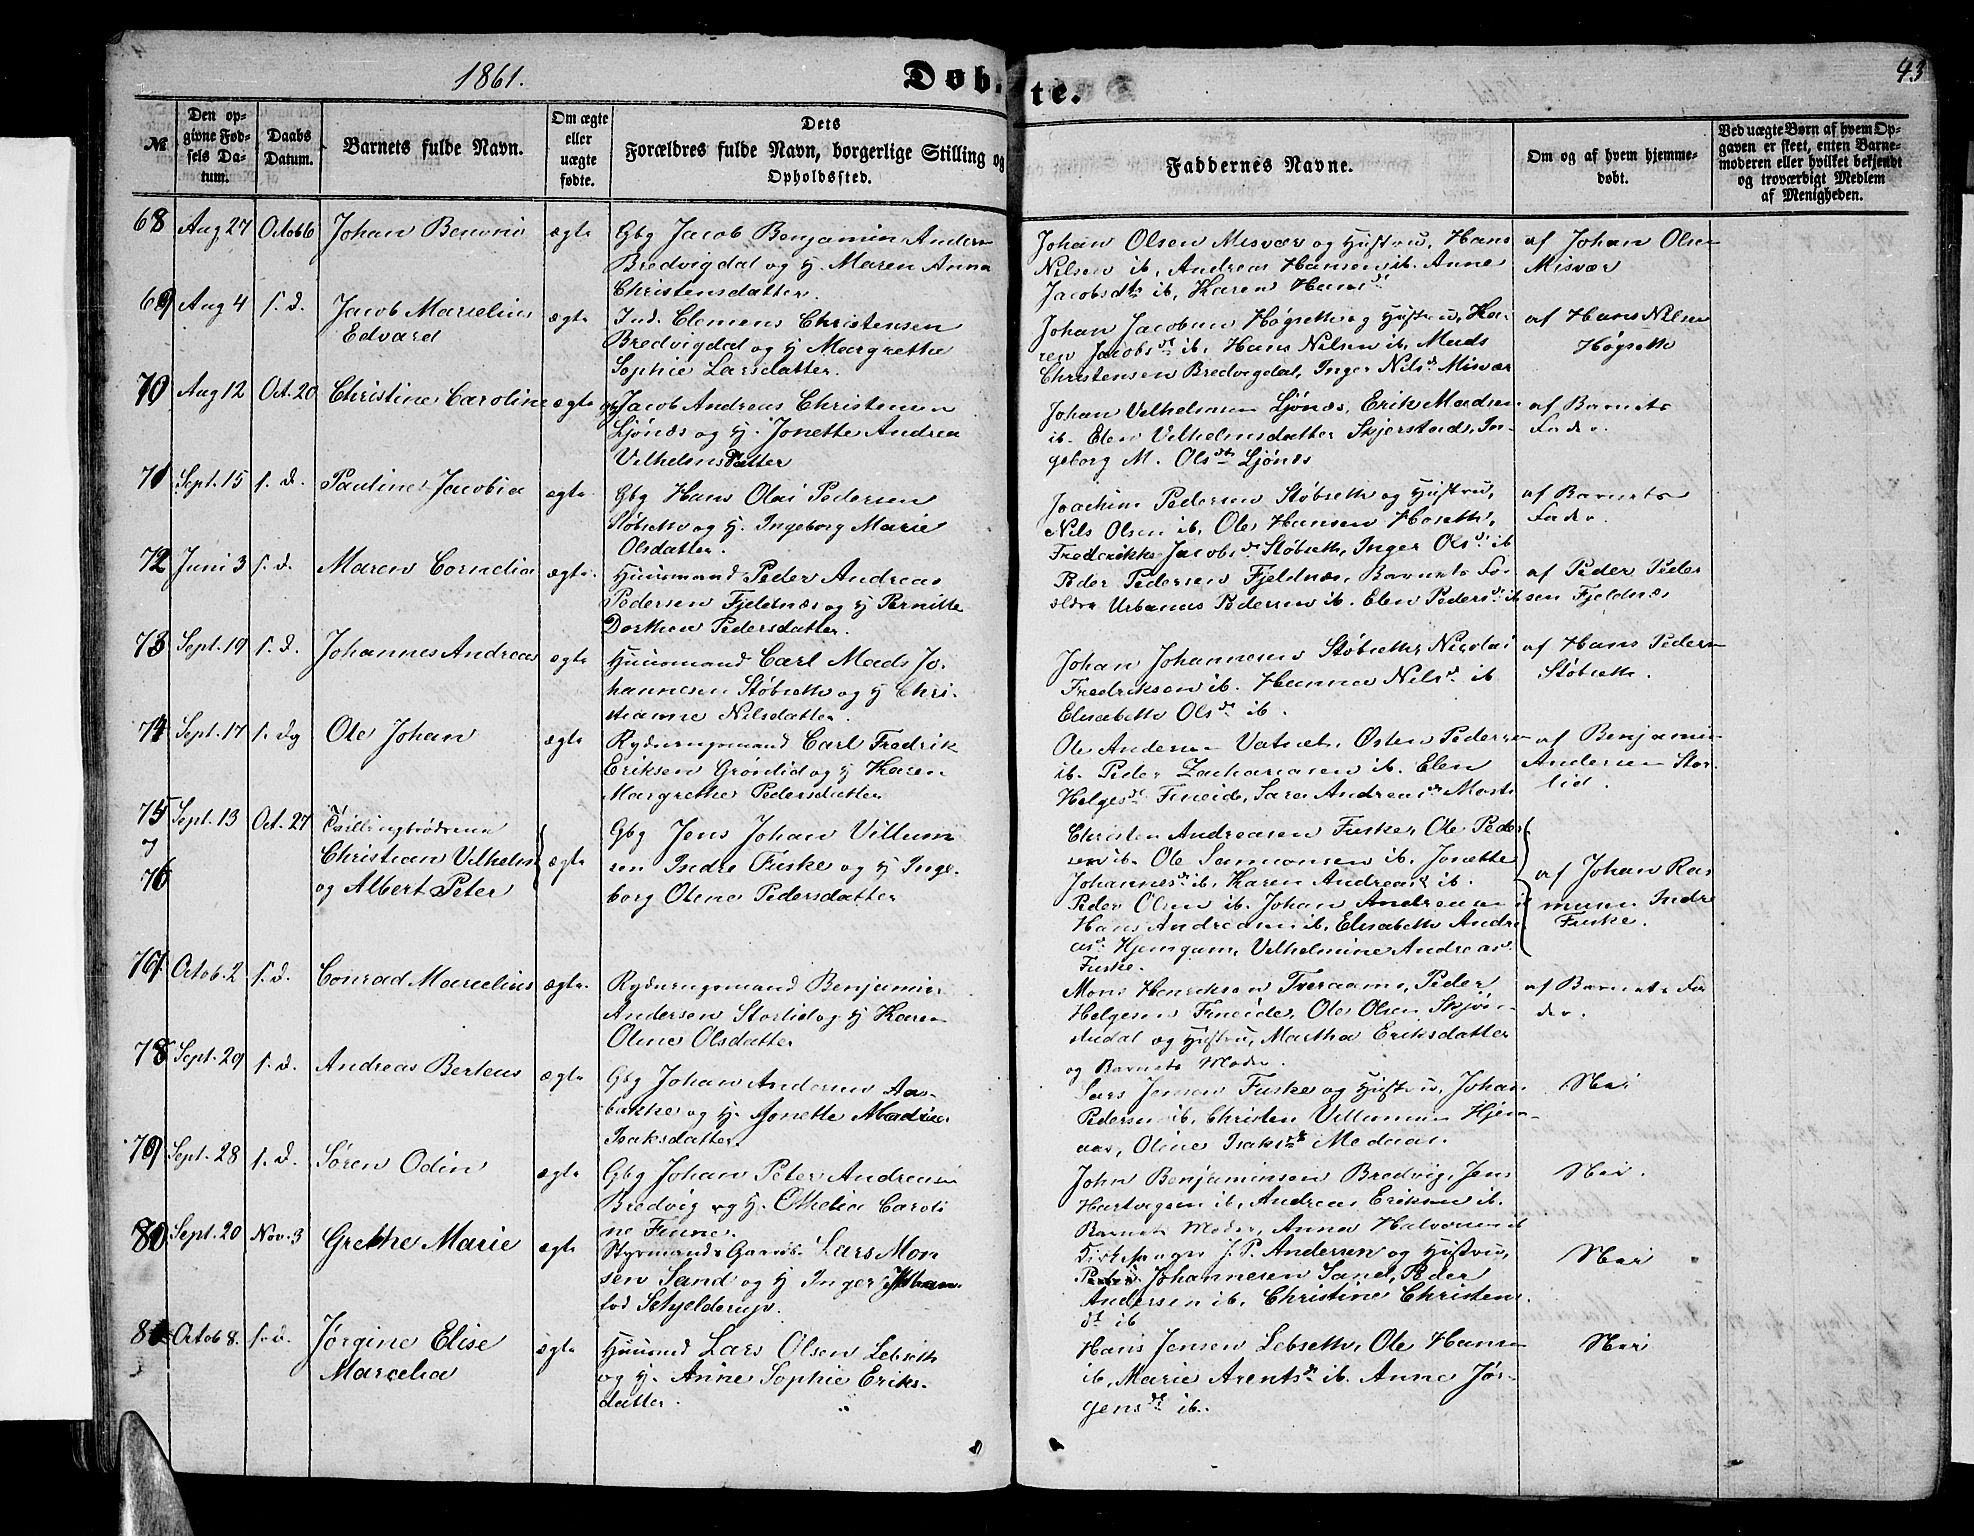 1861.
Døbte.
43
№
Den opgivne Fødsels Datum.
Daabs Datum.
Barnets fulde Navn.
Om ægte eller uægte fødte.
Dets Forældres fulde Navn, borgerlige Stilling og Opholdssted.
Faddernes Navne.
Om og af hvem hjemmedøbt.
Ved uægte Børn af hvem Opgaven er skeet, enten Barnemoderen eller hvilket bekjendt og troværdigt Medlem af Menigheden.
68 Aug 27 Octob 6 Johan ægte
Gbg Jacob Benjamin Andersen
Bredvigdal og H. Maren Anna
Christensdatter.
Johan Olsen Misvær og Hustru, Hans
Nilsen ib, Andreas Hansen ib. Anne
Jacobsdtr ib, Karen Hansd
af Johan Olsen
Misvær
69 Aug 4 s. d. Jacob Marcelius
Edvard
ægte
Ind. Clemens Christensen
Bredvigdal og H Margrethe
Sophie Larsdatter.
Johan Jacobsen Høgseth og Hustru, Ka-
ren Jacobsd ib, Hans Nilsen ib, Mads
Christensen Bredvigdal, Inger Nilsd Misvær
af Hans Nilsen
Høgseth
70 Aug 12 Oct. 20 Christine Caroline ægte
Gbg Jacob Andreas Christensen
Ljønes og H. Jonette Andrea
Vilhelmsdatter
Johan Vilhelmsen Ljønes, Erik Madsen
ib. Elen Vilhelmsdatter Skjerstad, In-
geborg M. Olsdtr Ljønes
af Barnets
Fader.
71 Sept. 15 s. d. Pauline Jacobia ægte
Gbg Hans Olai Pedersen
Støbseth og H. Ingeborg Marie
Olsdatter.
Joachim Pedersen Støbseth og Hustru,
Nils Olsen ib, Ole Hansen Hoseth,
Frederikke Jacobsd Støbseth, Inger Olsd ib
af Barnets
Fader.
72 Juni 3 s. d. Maren Cornelia ægte.
Huusmand Peder Andreas
Pedersen Fjeldnæs og H Pernille
Dorthea Pedersdatter.
Peder Pedersen Fjeldnæs, Barnets For-
ældre Urbanus Pedersen ib. Elen Pedersd ib
af Peder Peder
sen Fjeldnæs
73 Sept. 19 s. d. Johannes Andreas ægte
Huusmand Carl Mads Jo-
hannesen Støbseth og H Chri-
stianne Nilsdatter.
Johan Johannesen Støbseth, Nicolai
Fredriksen ib. Hanna Nilsd ib
Elisabeth Olsd ib.
af Hans Pedersen
Støbseth.
74 Sept. 17 s. Dg Ole Johan ægte
Rydningsmand Carl Fredrik
Eriksen Grønlid og H Karen
Margrethe Pedersdatter
Ole Andersen Vatnet, Østen Pedersen
ib. Peder Zachariasen ib. Elen
Helgesd Fineid, Sara Andreasdr
af Benjamin
Andersen Stor-
lid.
75
og
76
Sept. 13 Oct. 27 Tvillingbrødrene
Christian Vilhelm
og Albert Peter
ægte
Gbg Jens Johan Villum
sen Indre Fuske og H Inge-
borg Olena Pedersdatter
Christen Andreasen Fuske, Ole Peder-
sen ib. Ole Samionsen ib. Jonette
Johannesd ib, Karen Andreasd ib.
Peder Olsen ib. Johan Andreasen ib
Hans Andreasen ib, Elisabeth Andre
asd Hjemgam, Vilhelmine Andreasd
Fuske.
af Johan Ras
musen Indre
Fuske.
77 Octob. 2 s. d. Conrad Marcelius ægte
Rydningsmand Benjamin
Andersen Storlid og H Karen
Oline Olsdatter
Mons Henriksen Tveraamo, Peder
Helgesen Fineide, Ole Olsen Skjøn-
studal og Hustru, Martha Eriksdatter
og Barnets Moder.
af Barnets Fa
der.
78 Sept. 29 s. d. Andreas Berteus ægte
Gbg Johan Andersen Aas-
bakke og H. Jonette
Isaksdatter.
Lars Jensen Fuske og Hustru, Johan
Pedersen ib, Christen Villumsen Hjem-
aas, Oline Isaksdtr Medaas.
Nei
79 Sept. 28 s. d. Søren Odin ægte
Gbg Johan Peter Andreasen
Bredvig og H. Othelia Caroli
ne Finne.
John Benjaminsen Bredvig, Jens
Hartvigsen ib, Andreas Eriksen ib.
Barnets Moder, Anna Halvorsen ib
Nei.
80 Sept. 20 Nov. 3 Grethe Marie ægte
Styrmand Lars Mon
sen Sand og H Inger
Schjelderup.
Kirkesanger J. P. Andersen og Hustru,
Johannesen Sand, Peder
Andersen ib, Christine Christens
dt ib
Nei
81 Octob 8. s. d. Jørgine Elise
Marcelia
ægte
Huusmd Lars Olsen Lebseth
og H. Anne Sophie Eriks-
datter.
Hans Jensen Lebseth, Ole Hansen
ib, Marie Arentsd ib. Anne Jør-
gensd ib.
Nei